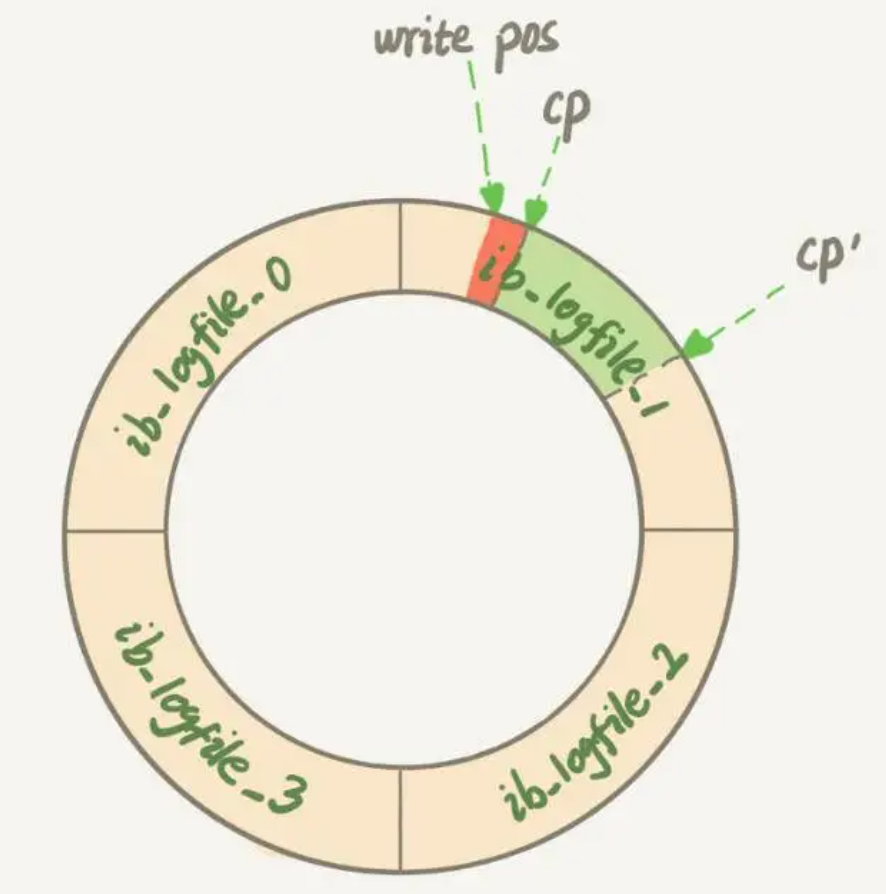 write pos
cp
cp'
ib_logfile_0
ib_logfile_1
ib_logfile_2
ib_logfile_3